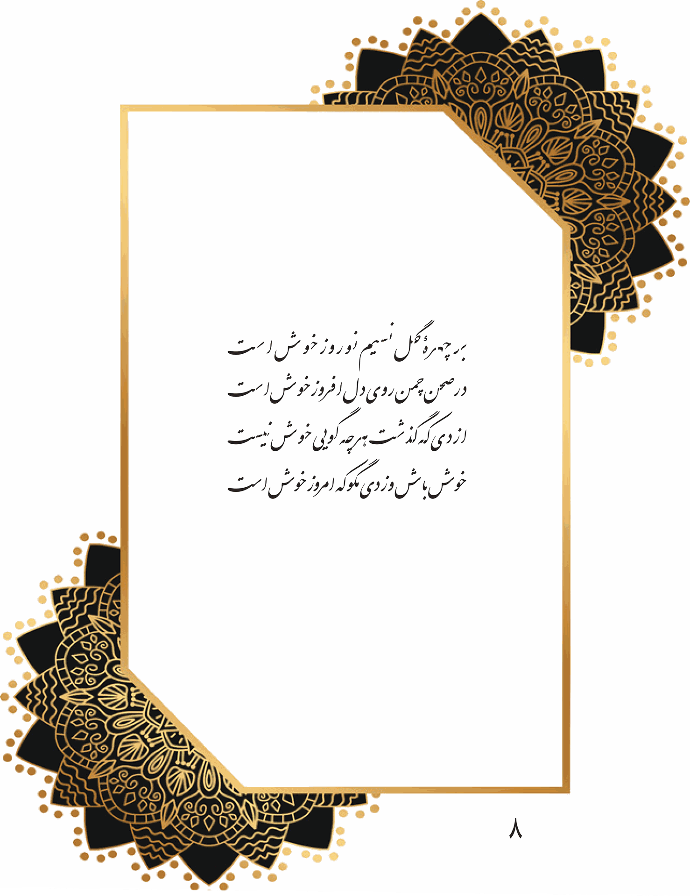 بر چهرهٔ گل نسیم نوروز خوش است
در صحن چمن روی دل افروز خوش است
از دی که گذشت هرچه گویی خوش نیست
خوش باش وز دی مگو که امروز خوش است
۸